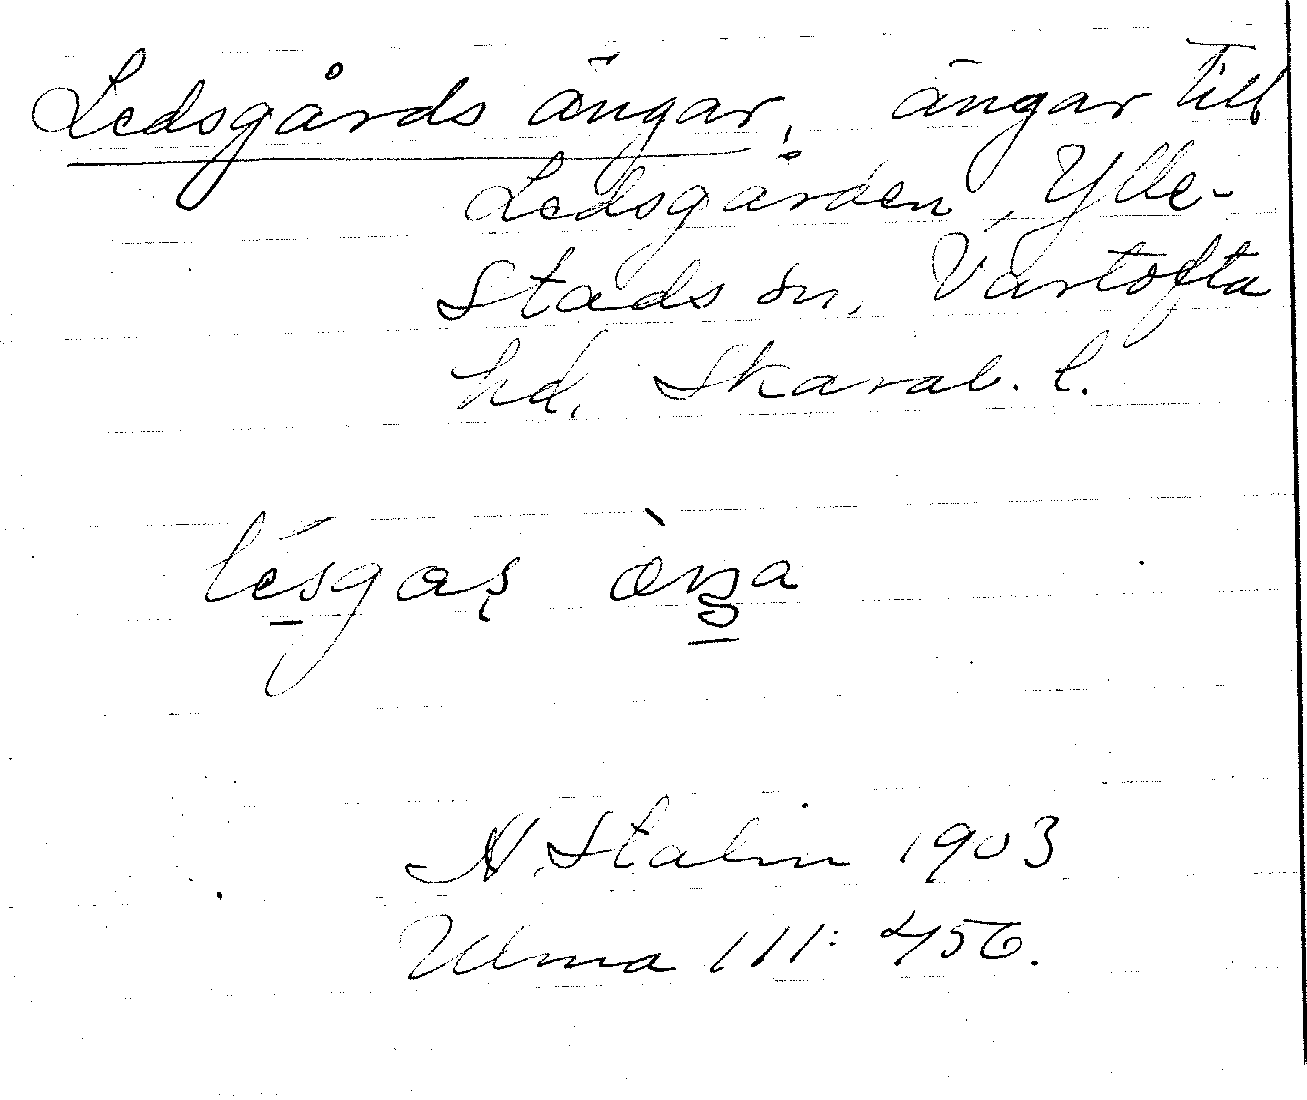 Ledsgårds ängar, ängar till
Ledsgården, Ylle-
stads sn, Vartofta
hd, Skarab. l.
lésgaʂ
A. Stalin 1903
Ulma 111: 456.